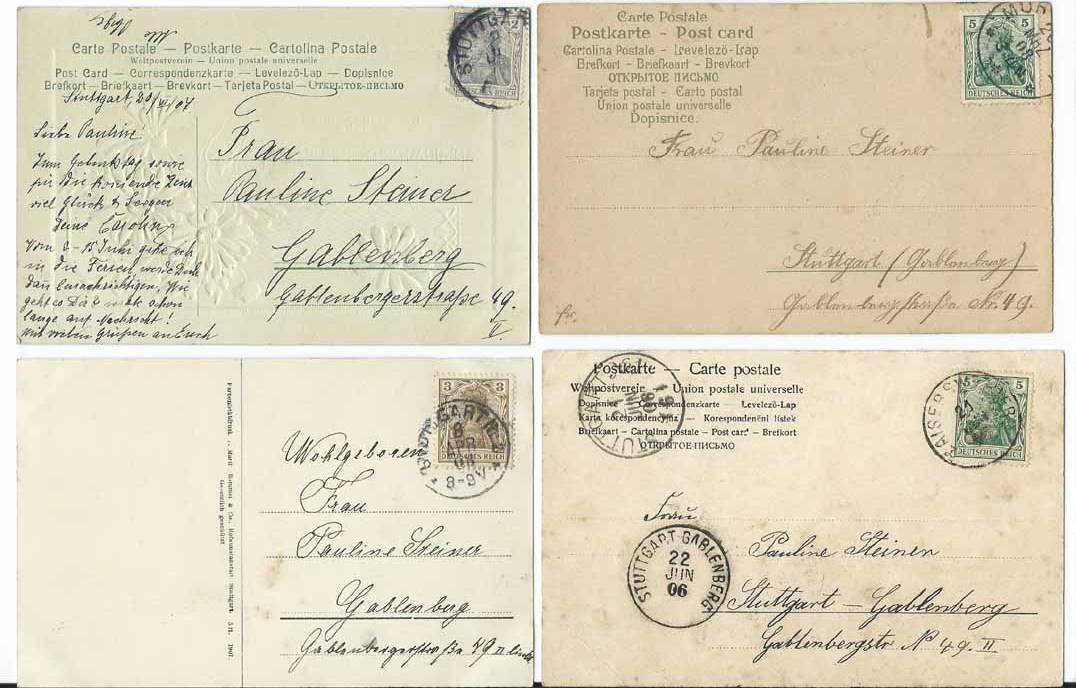 Carte Postale — Postkarte — Cartolina Postale
Weltpostverein — Union postale universelle
Post Card — Correspondenzkarte — Levelező-Lap — Dopisnice
Brefkort — Briefkaart — Brevkort — Tarjeta Postal — Открытое-письмо
STUTTGART
2
DEUTSCHES REICH
Stuttgart 20/VI/07
Liebe Pauline
Zum Gedenktag sowie
für die kommende Zeit
viel Glück & Seegen
Deine Caroline
Vom 2 - 15 Juni gehe ich
in die Ferien, werde Dich
dan benachrichtigen, Wie
geht es Dir
lange auf Nachricht!
Mit vielen Grüßen an Euch
Frau
Pauline Steiner
Gablenberg
Gablenbergerstraße 49.
II
Carte Postale
Postkarte — Post card
Cartolina Postale — Levelező-Lap
Brefkort — Briefkort — Brevkort
ОТКРЫТОЕ ПИСЬМО
Tarjeta postal — Carto postal
Union postale universelle
Dopisnice.
5 5
DEUTSCHES REICH
Frau Pauline Steiner
Stuttgart (Gablenberg)
Gablenbergstraße Nr. 49.
fr.
3 3
DEUTSCHES REICH
STUTTGART
8
APR
8-9V.
Wohlgeboren
Frau
Pauline Steiner
Gablenberg
Gablenbergerstraße 49 II links
Postkarte — Carte postale
Weltpostverein — Union postale universelle
Dopisnice — Correspondenzkarte — Levelező-Lap
Karta korespondencyjna — Korespondenční lístek
Briefkaart — Cartolina postale — Post card — Brefkort
ОТКРЫТОЕ-ПИСЬМО
STUTTGART
5
DEUTSCHES REICH
21
Frau
STUTTGART-GABLENBERG
22
JUN
06
Pauline Steiner
Stuttgart — Gablenberg
Gablenbergstr N 49. II